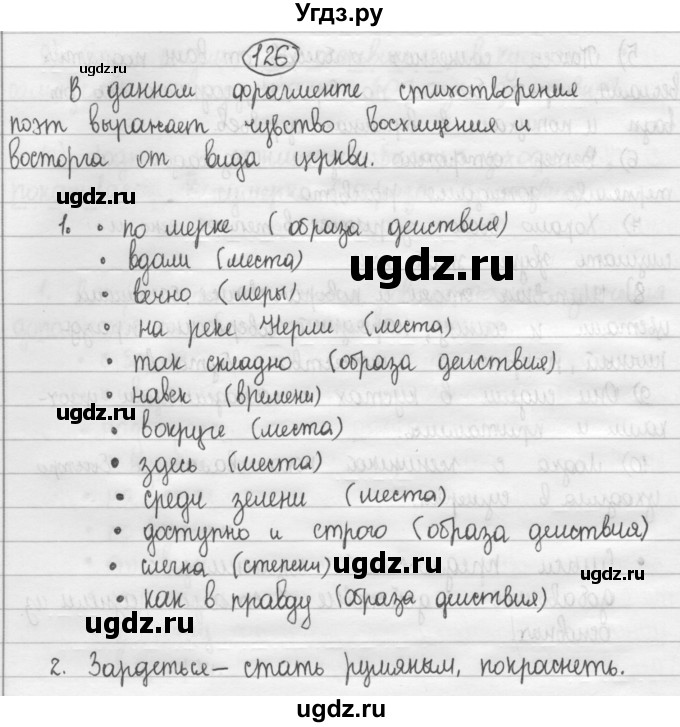 Угдз.ру
126
В данном фрагменте стихотворения
поэт выражает чувство восхищения и
восторга от вида церкви.
1. • по мерке (образа действия)
• вдали (места)
• вечно (меры)
• на реке Нерли (места)
• так складно (образа действия)
• навек (времени)
• вокруг (места)
• здесь (места)
• среди зелени (места)
• доступно и строго (образа действия)
• слегка (степени)
• как в правду (образа действия)
2. Зардеться – стать румяным, покраснеть.
ugdz.ru
ugdz.ru
ugdz.ru
ugdz.ru
ugdz.ru
ugdz.ru
ugdz.ru
ugdz.ru
ugdz.ru
Угдз.ру